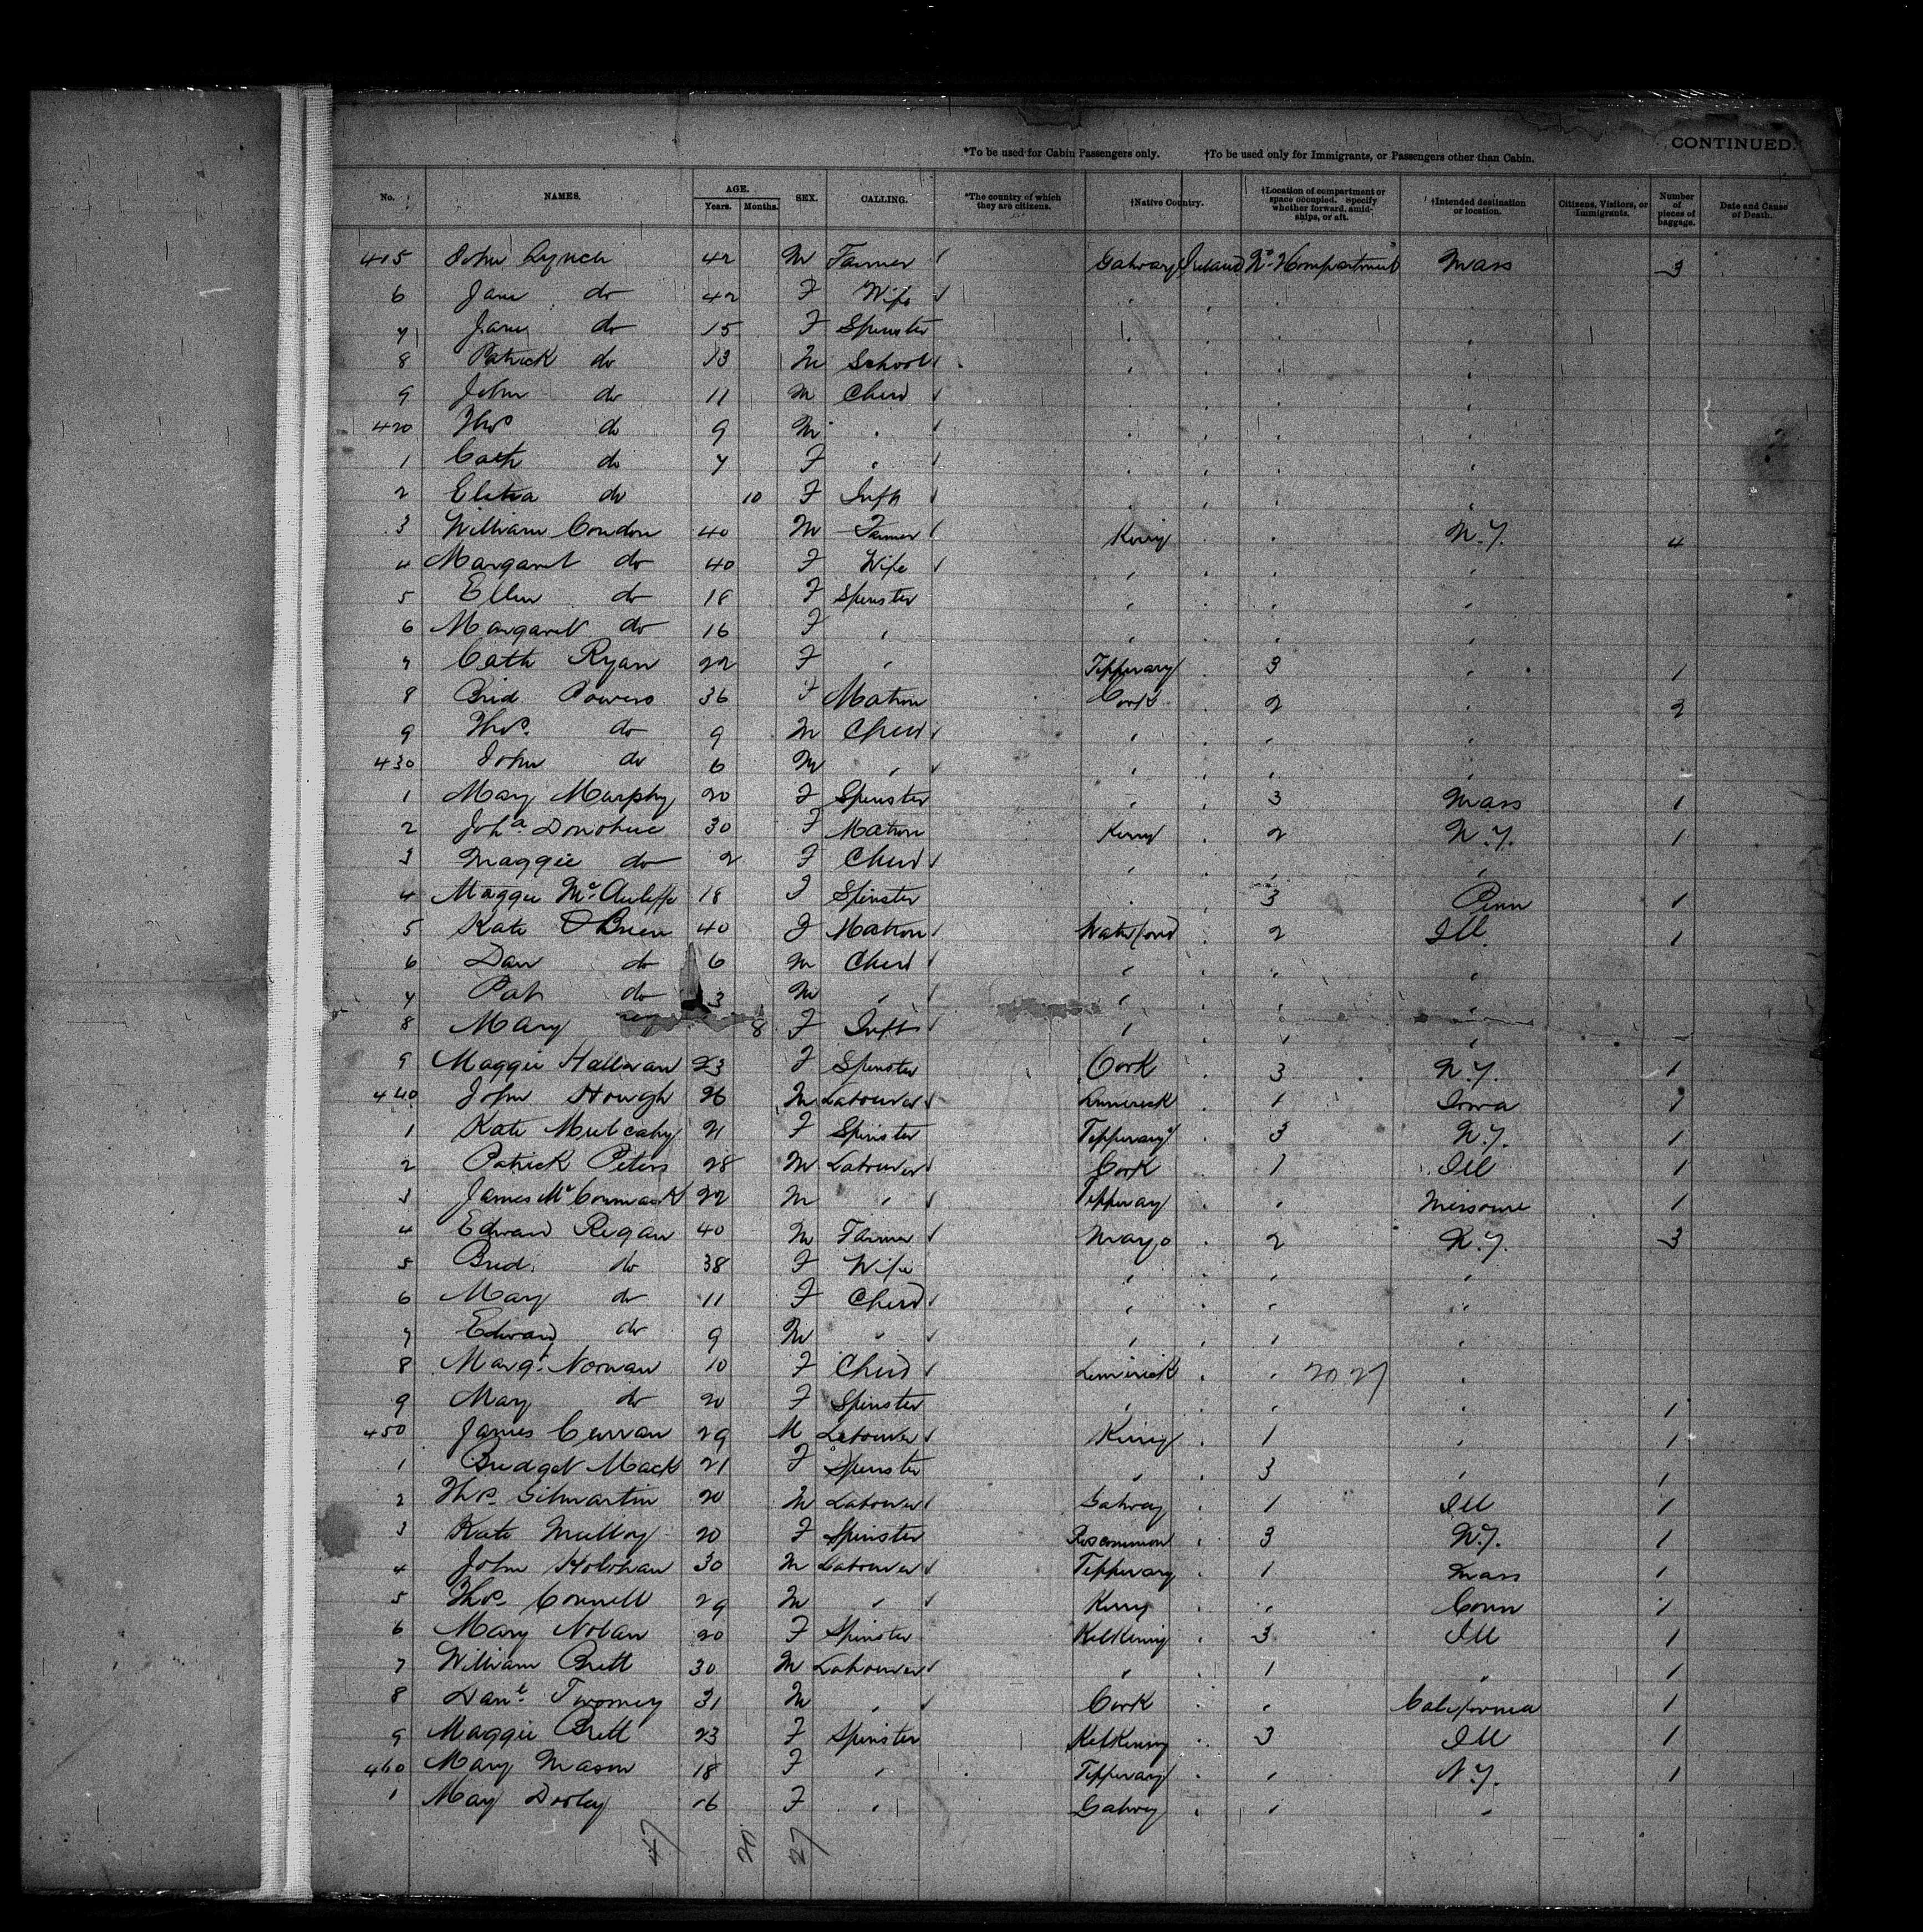 CONTINUED.
*To be used for Cabin Passengers only. †To be used only for Immigrants, or Passengers other than Cabin.
No. NAMES. AGE. Years. Months. SEX. CALLING. *The country of which they are citizens. †Native Country. †Location of compartment or space occupied. Specify whether forward, amidships, or aft. †Intended destination or location. Citizens, Visitors, or Immigrants. Number of pieces of baggage. Date and Cause of Death.
415 John Lynch 42 M Farmer Galway Ireland No 2 Compartment Mass 3
6 Jane do 42 F Wife " " " "
7 Jane do 15 F Spinster " " " "
8 Patrick do 13 M School " " " "
9 John do 11 M Child " " " "
420 Thos do 9 M " " " " "
1 Cath do 7 F " " " " "
2 do 10 F Inft " " " "
3 William Condon 40 M Farmer Kerry " " N.Y. 4
4 Margaret do 40 F Wife " " " "
5 Ellen do 18 F Spinster " " " "
6 Margaret do 16 F " " " " "
7 Cath Ryan 22 F " Tipperary " 3 " 1
8 Brid. Powers 36 F Matron Cork " 2 " 2
9 Thos. do 9 M Child " " " "
430 John do 6 M " " " " "
1 Mary Murphy 20 F Spinster " " 3 Mass 1
2 Joha Donohue 30 F Matron Kerry " 2 N.Y. 1
3 Maggie do 2 F Child " " " "
4 Maggie McAuliffe 18 F Spinster " " 3 Penn 1
5 Kate O'Brien 40 F Matron Waterford " 2 Ill 1
6 Dan do 6 M Child " " " "
7 Pat do 3 M " " " " "
8 Mary 8 F Inft " " " "
9 Maggie Halloran 23 F Spinster Cork " 3 N.Y. 1
440 John Hough 26 M Labourer Limerick " 1 Iowa 1
1 Kate Mulcahy 21 F Spinster Tipperary " 3 N.Y. 1
2 Patrick Peters 28 M Labourer Cork " 1 Ill 1
3 James McCormack 22 M " Tipperary " " Missouri 1
4 Edward Regan 40 M Farmer Mayo " 2 N.Y. 3
5 Brid. do 38 F Wife " " " "
6 Mary do 11 F Child " " " "
7 Edward do 9 M " " " " "
8 Margt Noonan 10 F Child Limerick " " 20 27 "
9 Mary do 20 F Spinster " " " " 1
450 James Curran 29 M Labourer Kerry " 1 " 1
1 Bridget Mack 21 F Spinster " " 3 " 1
2 Thos Gilmartin 20 M Labourer Galway " 1 Ill 1
3 Kate Mulloy 20 F Spinster Roscommon " 3 N.Y. 1
4 John Holohan 30 M Labourer Tipperary " 1 Mass 1
5 Thos. Connell 29 M " Kerry " " Conn 1
6 Mary Nolan 20 F Spinster Kilkenny " 3 Ill 1
7 William Brett 30 M Labourer " " 1 " 1
8 Danl. Twomey 31 M " Cork " " California 1
9 Maggie Brett 23 F Spinster Kilkenny " 3 Ill 1
460 Mary Mason 18 F " Tipperary " " N.Y. 1
1 Mary Dooley 16 F " Galway " " "
47 20 27